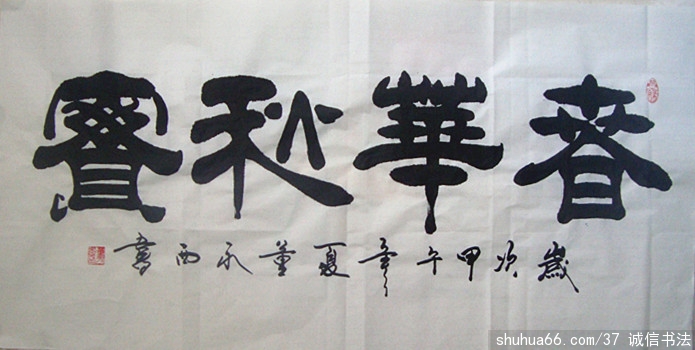 春華秋實
歲次甲午年夏董永西書
shuhua66.com/37 诚信书法